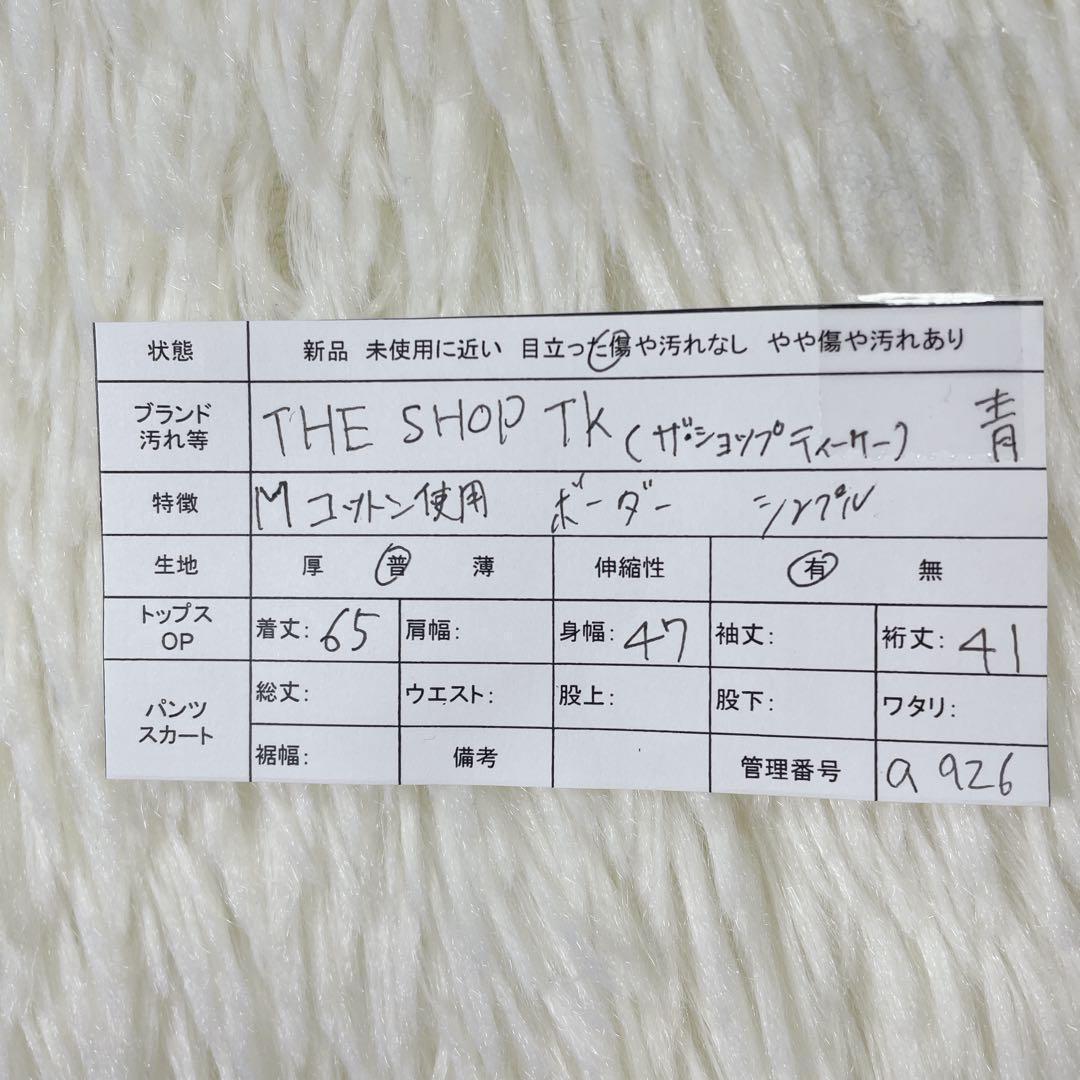 状態 新品 未使用に近い 目立った傷や汚れなし やや傷や汚れあり
ブランド
汚れ等 THE SHOP TK (ザ・ショップティーケー) 青
特徴 M コットン使用 ボーダー シンプル
生地 厚 普 薄 伸縮性 有 無
トップス
OP 着丈: 65 肩幅: 身幅: 47 袖丈: 裄丈: 41
パンツ
スカート 総丈: ウエスト: 股上: 股下: ワタリ:
裾幅: 備考 管理番号 a 926